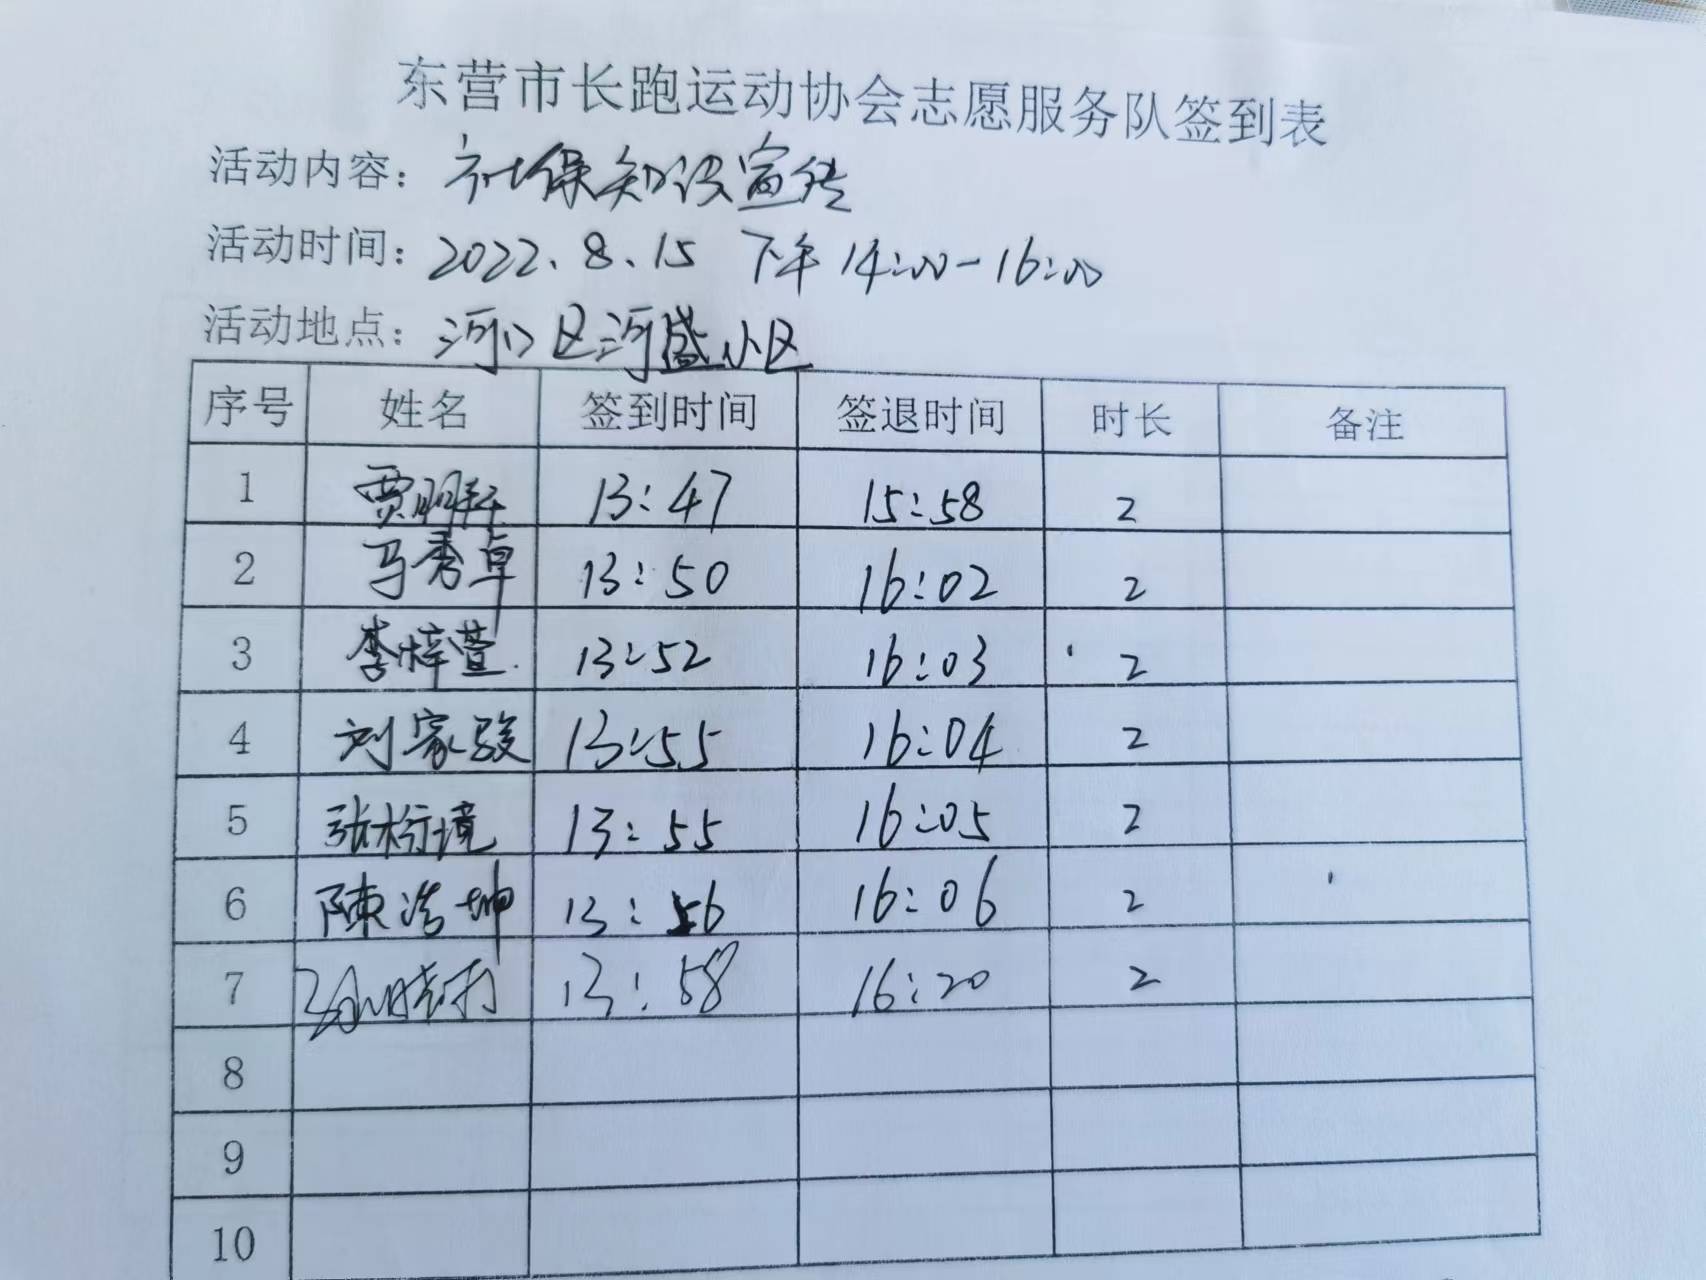 东营市长跑运动协会志愿服务队签到表
活动内容：社保知识宣传
活动时间：2022.8.15 下午14:00-16:00
活动地点：河口区河盛小区
序号 姓名 签到时间 签退时间 时长 备注
1 贾明 13:47 15:58 2
2 马秀卓 13:50 16:02 2
3 李梓萱 13:52 16:03 2
4 刘家骏 13:55 16:04 2
5 张 境 13:55 16:05 2
6 陳浩坤 13:56 16:06 2
7 13:58 16:20 2
8
9
10